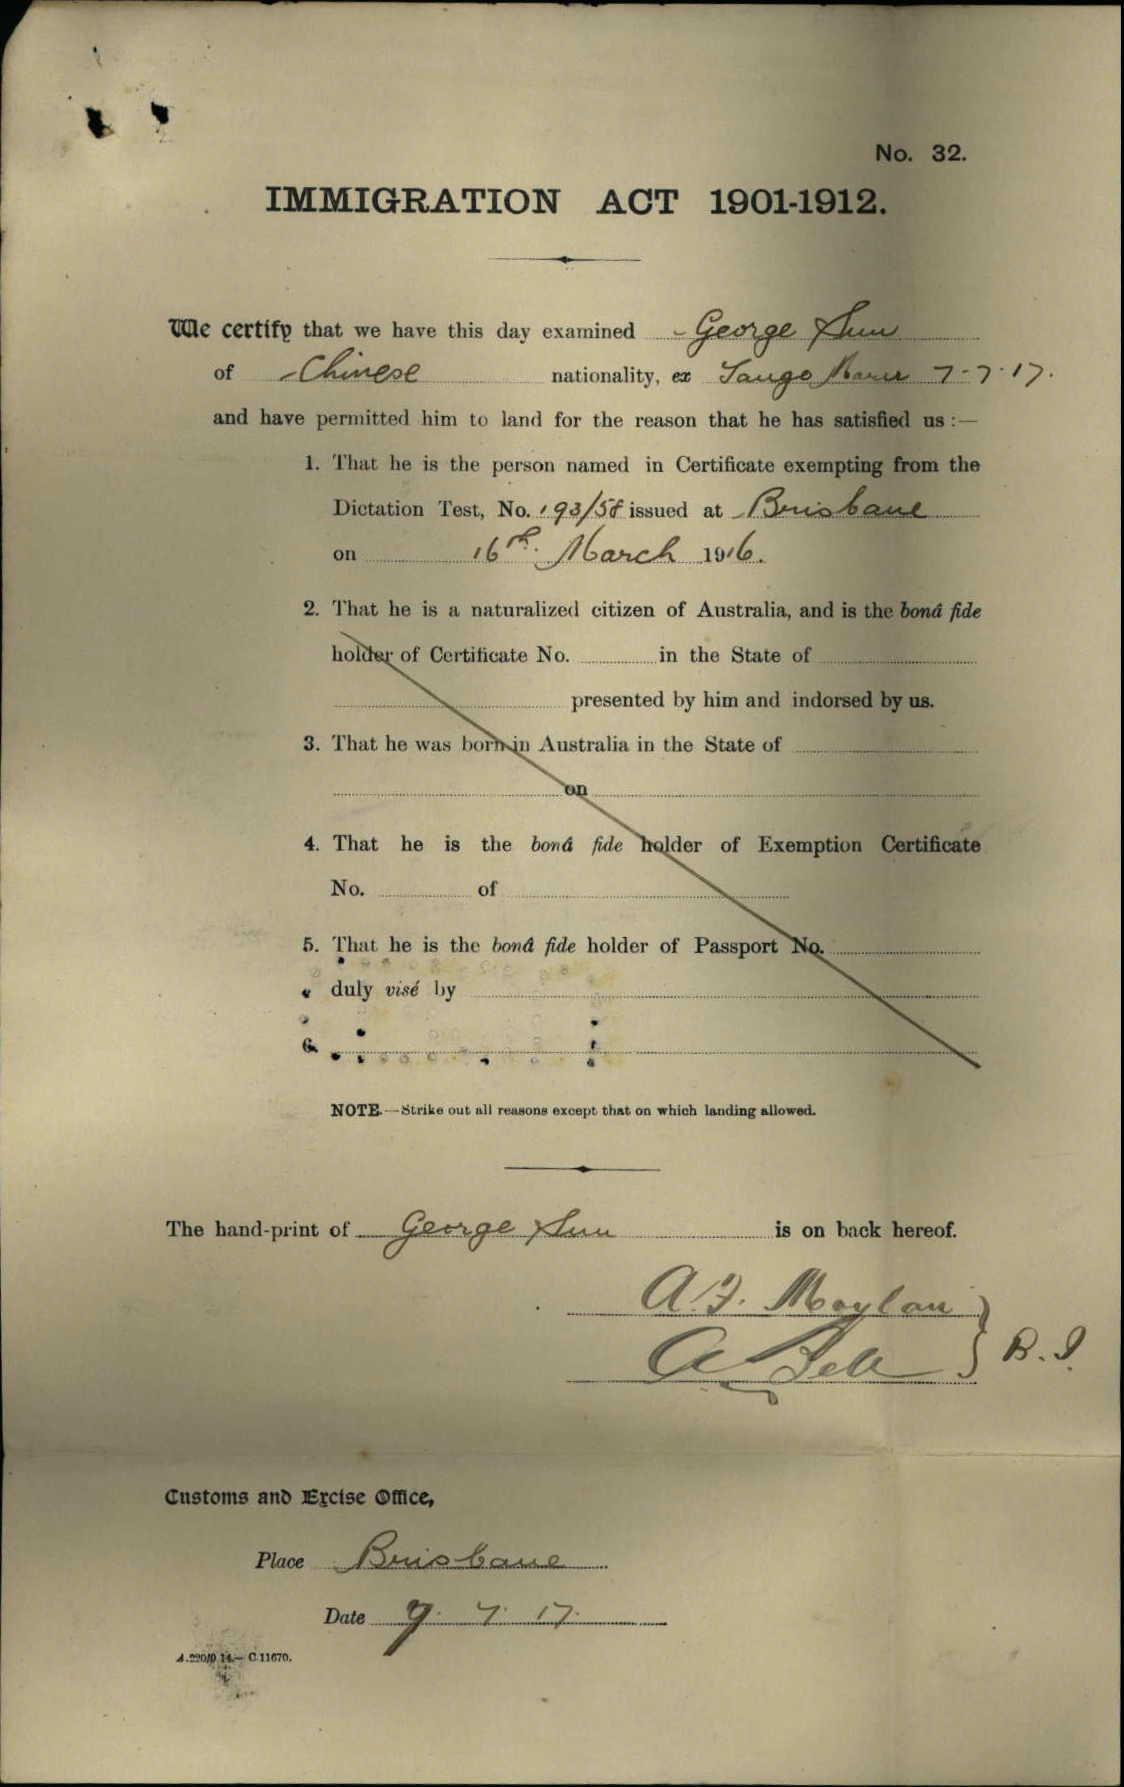 No. 32.
IMMIGRATION ACT 1901-1912.
We certify that we have this day examined George Sun
of Chinese nationality, ex Tango Maru 7-7-17.
and have permitted him to land for the reason that he has satisfied us :—
1. That he is the person named in Certificate exempting from the
Dictation Test, No. 193/58 issued at Brisbane
on 16th. March 1916.
2. That he is a naturalized citizen of Australia, and is the bonâ fide
holder of Certificate No. in the State of
presented by him and indorsed by us.
3. That he was born in Australia in the State of
on
4. That he is the bonâ fide holder of Exemption Certificate
No. of
5. That he is the bonâ fide holder of Passport No.
duly visé by
6.
NOTE.—Strike out all reasons except that on which landing allowed.
The hand-print of George Sun is on back hereof.
A. J. Moylan
A Bell } B. I.
Customs and Excise Office,
Place Brisbane
Date 7. 7. 17.
A.220/9.14.— C.11670.